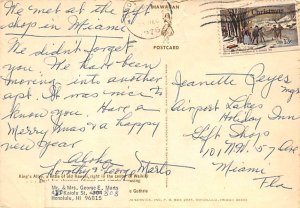 We met at the Gift
shop in Miami.
We didn't forget
you. We have been
moving into another
apt. It was nice to
know you. Have a
Merry Xmas & a happy
new Year
Aloha
Dorothy & George Marts
HAWAIIAN
POSTCARD
Christmas
Jeanette Reyes
Airport Lakes
Holiday Inn
Gift Shop
101 N.W. 57 Ave
Miami
Fla
Mr. & Mrs. George E. Marts
Honolulu, HI 96815